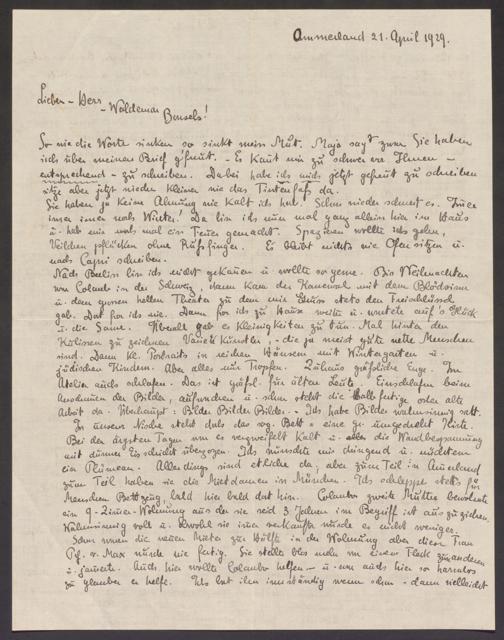 Ammerland 21. April 1929.
Lieber - Herr
- Waldemar
Bonsels!
So wie die Worte sinken so sinkt mein Mut. Maja sagt zwar Sie haben
sich über meinen Brief gefreut. - Es kam mir zu schwer Ihnen -
entsprechend - zu schreiben. Dabei habe ich mich jetzt gefreut zu schreiben
sitze aber jetzt wieder kleiner wie das Tintenfaß da.
Sie haben ja keine Ahnung wie kalt ich hab! Schon wieder schneit es.
immer noch Winter! Da bin ich nun mal ganz allein hier im Haus
u. hab mir noch mal ein Feuer gemacht. Spazieren wollte ich gehn,
Veilchen pflücken ohne Es bleibt nichts wie Ofensitzen u.
nach Capri schreiben.
Nach Berlin bin ich nicht gekommen u. wollte so gerne. Bis Weihnachten
war Colombo in der Schweiz, dann kam der Karneval mit dem Blödsinn
u. dem guten hellen Theater zu dem mir stets den Freischlüssel
gab. Dort for ich nie. Dann for ich zu Hause weiter u. wartete auf's Glück
u. die Sonne. Überall gab es Kleinigkeiten zu tun. Mal hinter den
Kulissen zu zeichnen Varieté Künstler, - die ja meist gute nette Menschen
sind. Dann kl. Portraits in reichen Häusern mit Wintergarten u.
jüdischen Kindern. Aber alles nur Tropfen. Zuhaus gräßliche Enge. Im
Atelier auch schlafen. Das ist gräßl. für ältere Leute. Einschlafen beim
Anschauen der Bilder, aufwachen u. schon steht die halbfertige oder alte
Arbeit da. Überhaupt: Bilder Bilder Bilder. - Ich habe Bilder wahnsinnig satt.
In unserer Nische steht das sog. Bett = eine gr. umgedrehte Kiste.
Bei den ärgsten Tagen war es verzweifelt kalt u. die Wandbespannung
mit dünner Eisschicht überzogen. Ich wünschte mir dringend u. nüchtern
ein Plumeau. Allerdings sind etliche da, aber zum Teil in Ammerland
zum Teil haben sie die Mietdamen in München. Ich schleppe stets für
Menschen Bettzeug, bald hier bald dort hin. Colombo zweite Mutter bewohnte
ein 9-Zimmer-Wohnung aus der sie seid 3 Jahren im Begriff ist auszuziehen.
Wahnsinnig voll u. obwohl sie immer verkaufte wurde es nicht weniger.
Schon waren die neuen Mieter zur Hälfte in der Wohnung aber diese Frau
Prof. v. Max wurde nie fertig. Sie stellte bloß mehr von einem Fleck zum anderen
u. jammerte. Auch hier wollte Colombo helfen - u. war auch hier so harmlos
zu glauben er helfe. Ich bat ihn inständig wenn schon - dann vielleicht